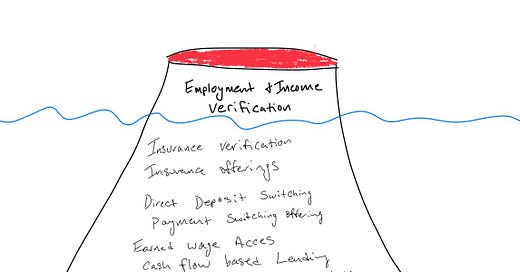 Employment & Income
Verification
Insurance verification
Insurance offerings
Direct Deposit Switching
Payment Switching offering
Earned wage Acces
Cash flow based Lending